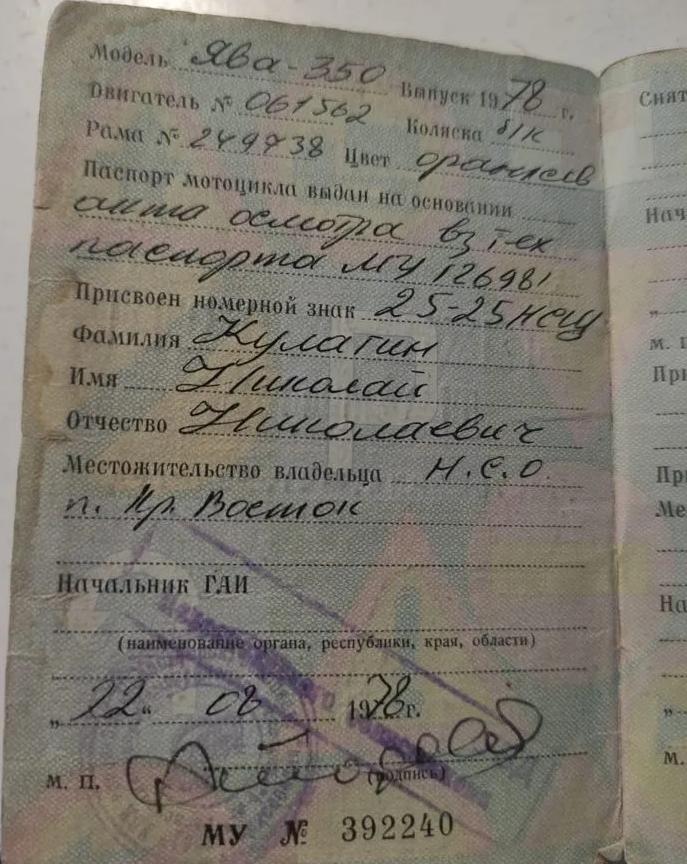 Модель Ява-350 Выпуск 1978 г.
Двигатель № 061562 Коляска б/к
Рама № 249738 Цвет оранжев
Паспорт мотоцикла выдан на основании
акта осмотра вз тех
паспорта МУ 126981
Присвоен номерной знак 25-25 НСЩ
Фамилия Кулагин
Имя Николай
Отчество Николаевич
Местожительство владельца Н.С.О.
п. Кр. Восток
Начальник ГАИ
(наименование органа, республики, края, области)
„22“ 08 1978 г.
М. П. (подпись)
МУ № 392240
Снят
Нач
„
м. п
При
При
Ме
На
„
м.